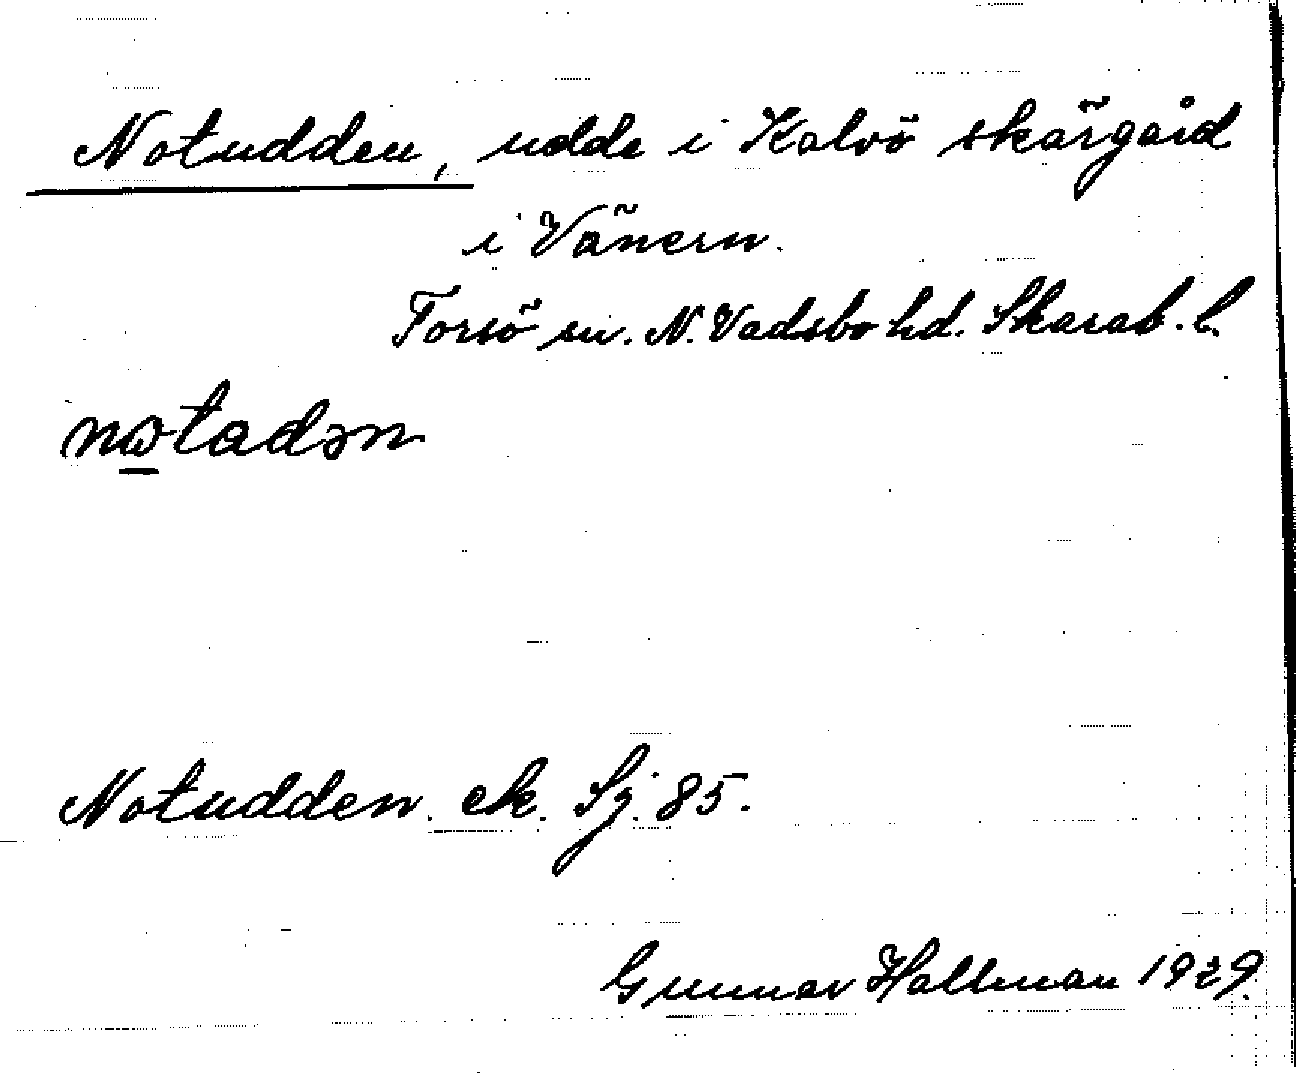 Notudden, udde i Kalvö skärgård
i Vänern.
Torsö sn. N. Vadsbo hd. Skarab. l.
nɷtadən
Notudden. ek. Sj. 85.
Gunnar Hallman 1929.